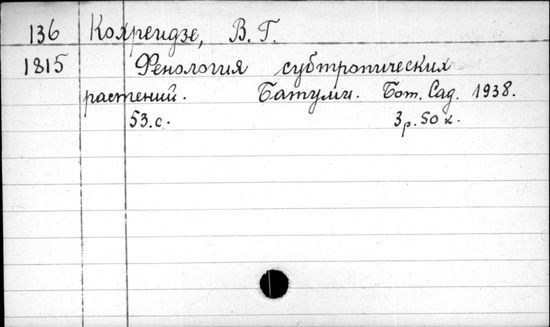 136 Кохреидзе, В. Г.
1815 Фенология субтропических
растений. Батуми. Бот. Сад. 1938.
53.с. 3р. 50 к.